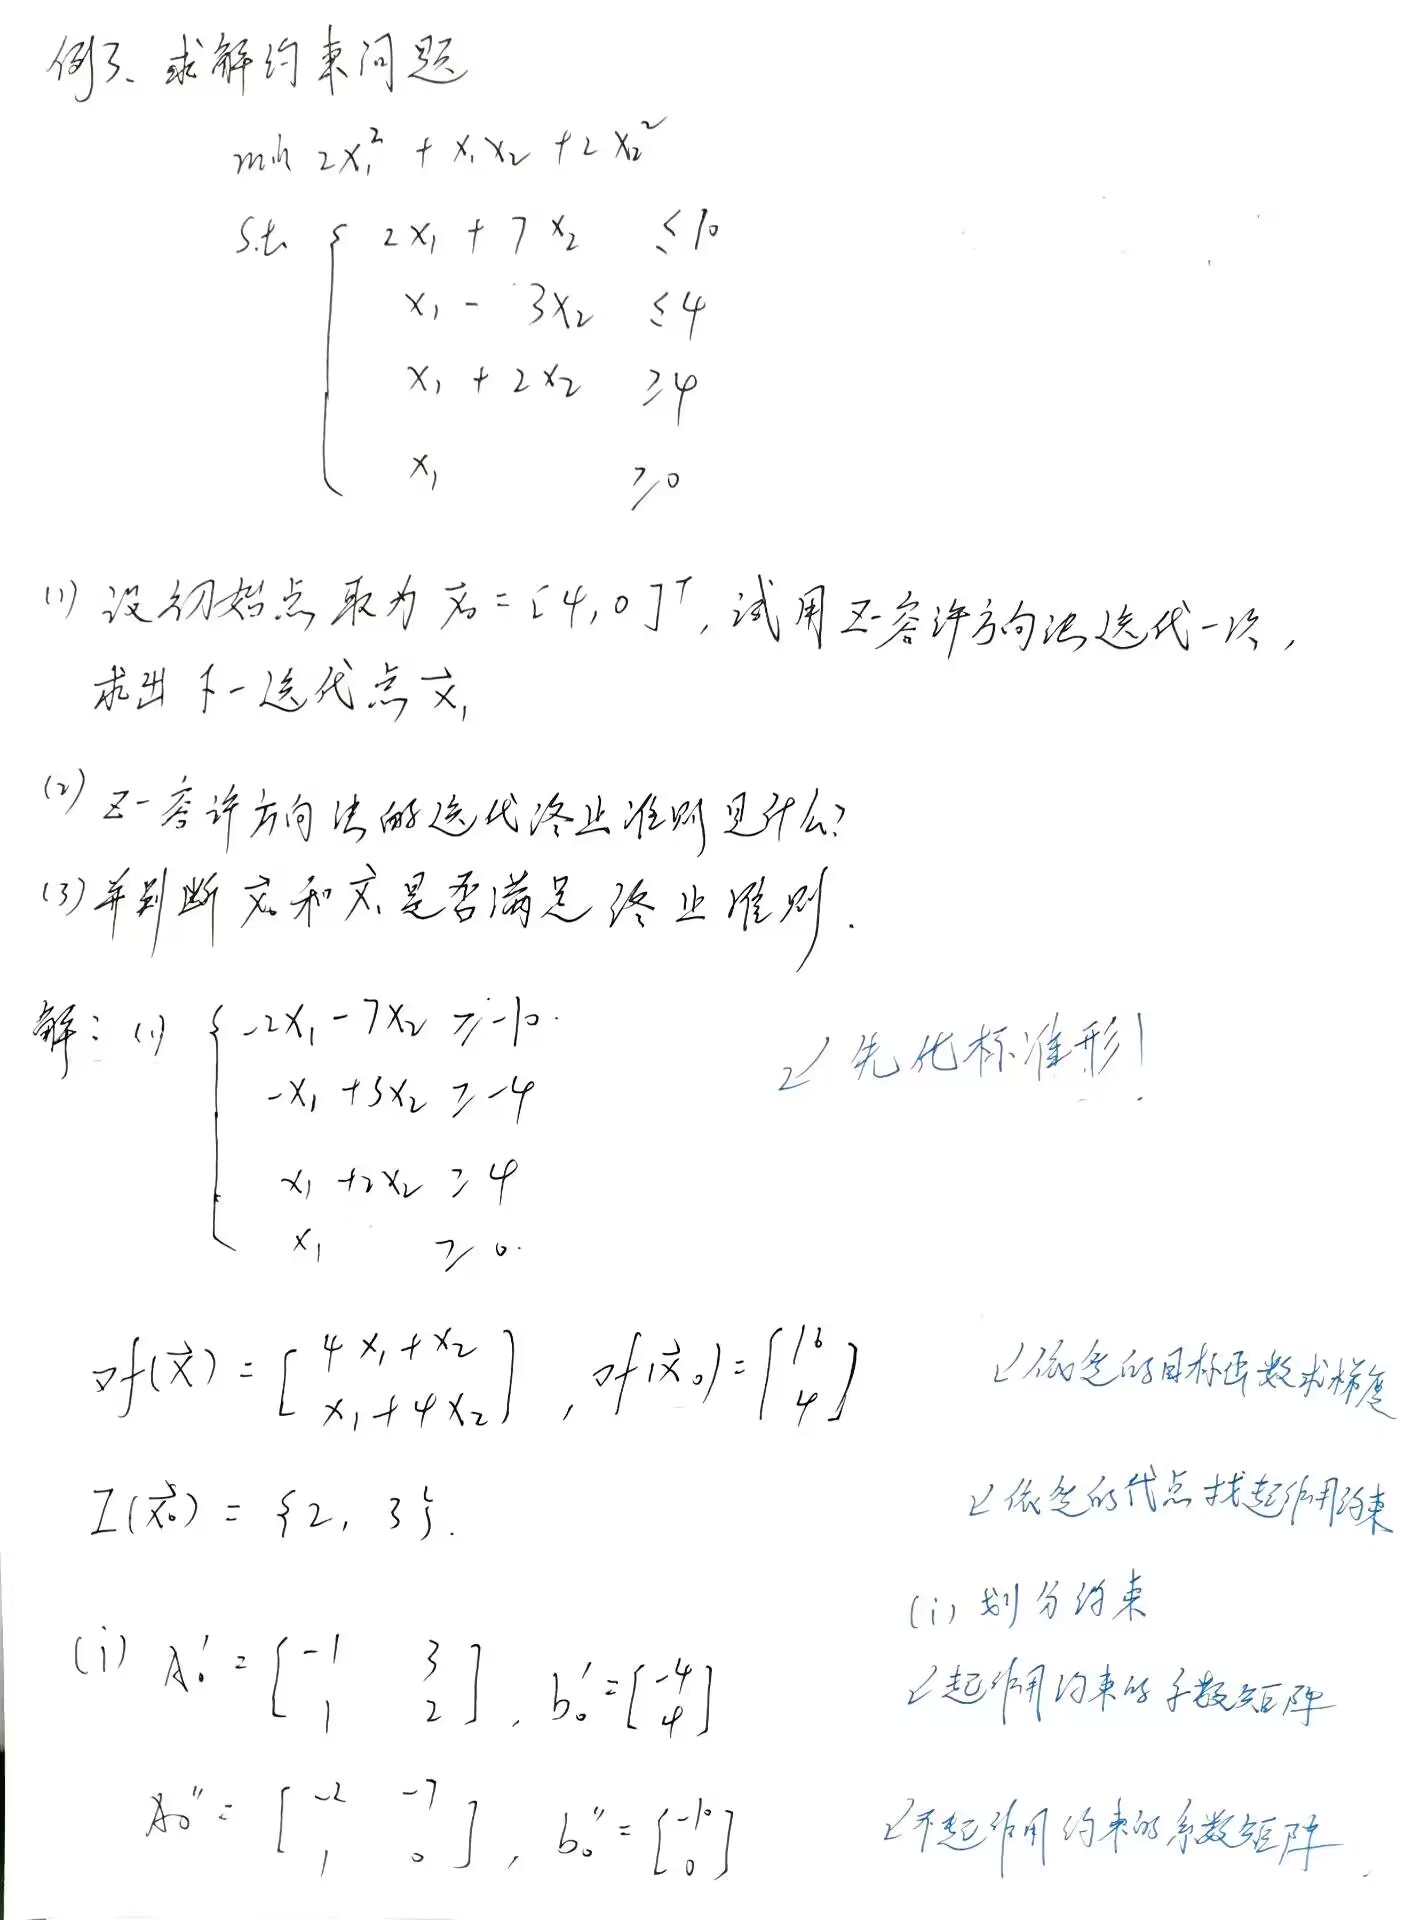 例3、求解约束问题
min 2x₁² + x₁x₂ + 2x₂²
s.t. { 2x₁ + 7x₂ ≤10
x₁ - 3x₂ ≤4
x₁ + 2x₂ ≥4
x₁ ≥0
(1) 设初始点取为 x⃗₀ = [4,0]ᵀ, 试用Z-容许方向法迭代一次,
求出下一迭代点 x⃗₁
(2) Z-容许方向法的迭代终止准则是什么?
(3) 并判断 x⃗₀ 和 x⃗₁ 是否满足终止准则.
解: (1) { -2x₁ - 7x₂ ≥ -10. ✓先化标准形!
-x₁ + 3x₂ ≥ -4
x₁ + 2x₂ ≥ 4
x₁ ≥ 0.
∇f(x⃗) = [4x₁+x₂ x₁+4x₂], ∇f(x⃗₀) = [16 4] ✓依题的目标函数求梯度
I(x⃗₀) = {2, 3}. ✓依题的代点找起作用约束
(i) 划分约束
(i) A₀' = [-1 3 1 2], b₀' = [-4 4] ✓起作用约束的系数矩阵
A₀'' = [-2 -7 1 0], b₀'' = [-10 0] ✓不起作用约束的系数矩阵